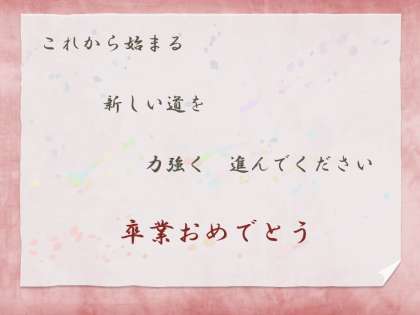 これから始まる
新しい道を
力強く　進んでください
卒業おめでとう